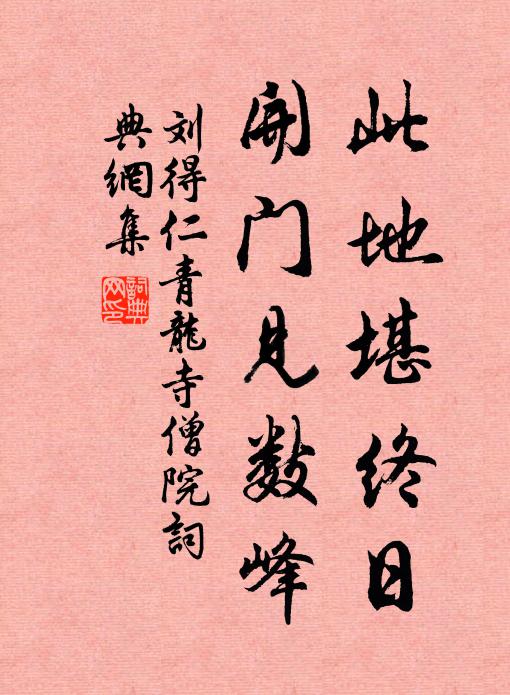 此地堪终日
开门见数峰
刘得仁青龍寺僧院詞
典網集
詞典网印